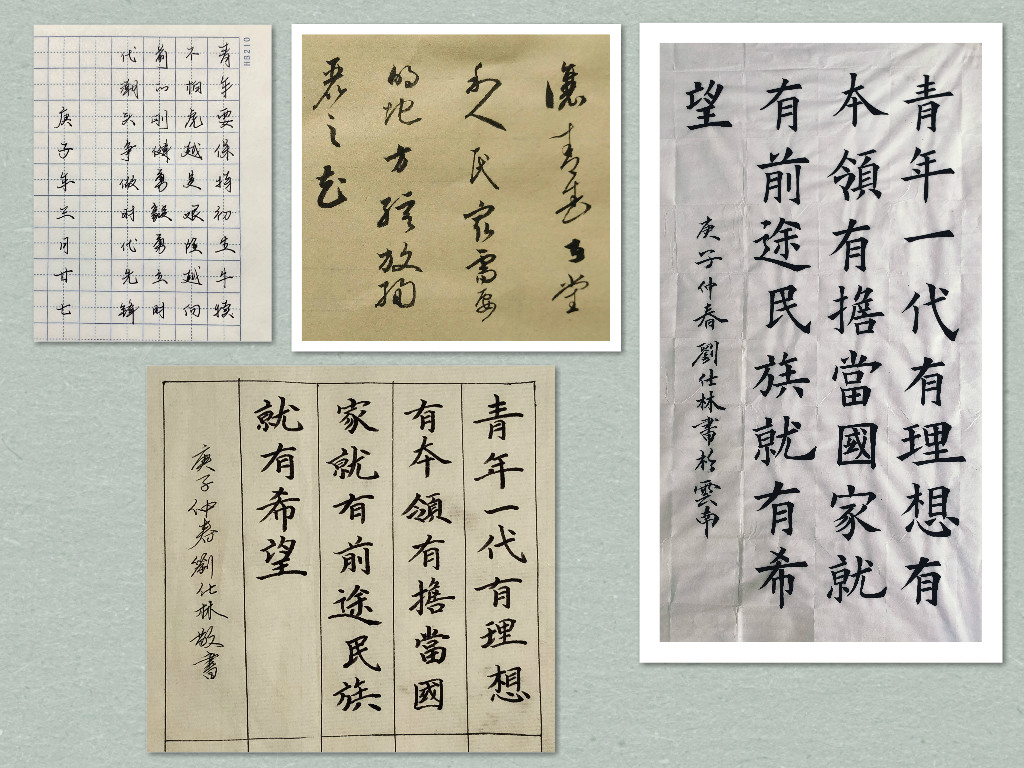 HB210
青年要保持初生牛犊
不怕虎越是艰险越向
前的刚健勇毅勇立时
代潮头争做时代先锋
庚子年三月廿七
讓青春在黨
和人民最需要
的地方绽放绚
麗之花
青年一代有理想有
本領有擔當國家就
有前途民族就有希
望
庚子仲春劉仕林書於雲南
青年一代有理想
有本領有擔當國
家就有前途民族
就有希望
庚子仲春劉仕林敬書